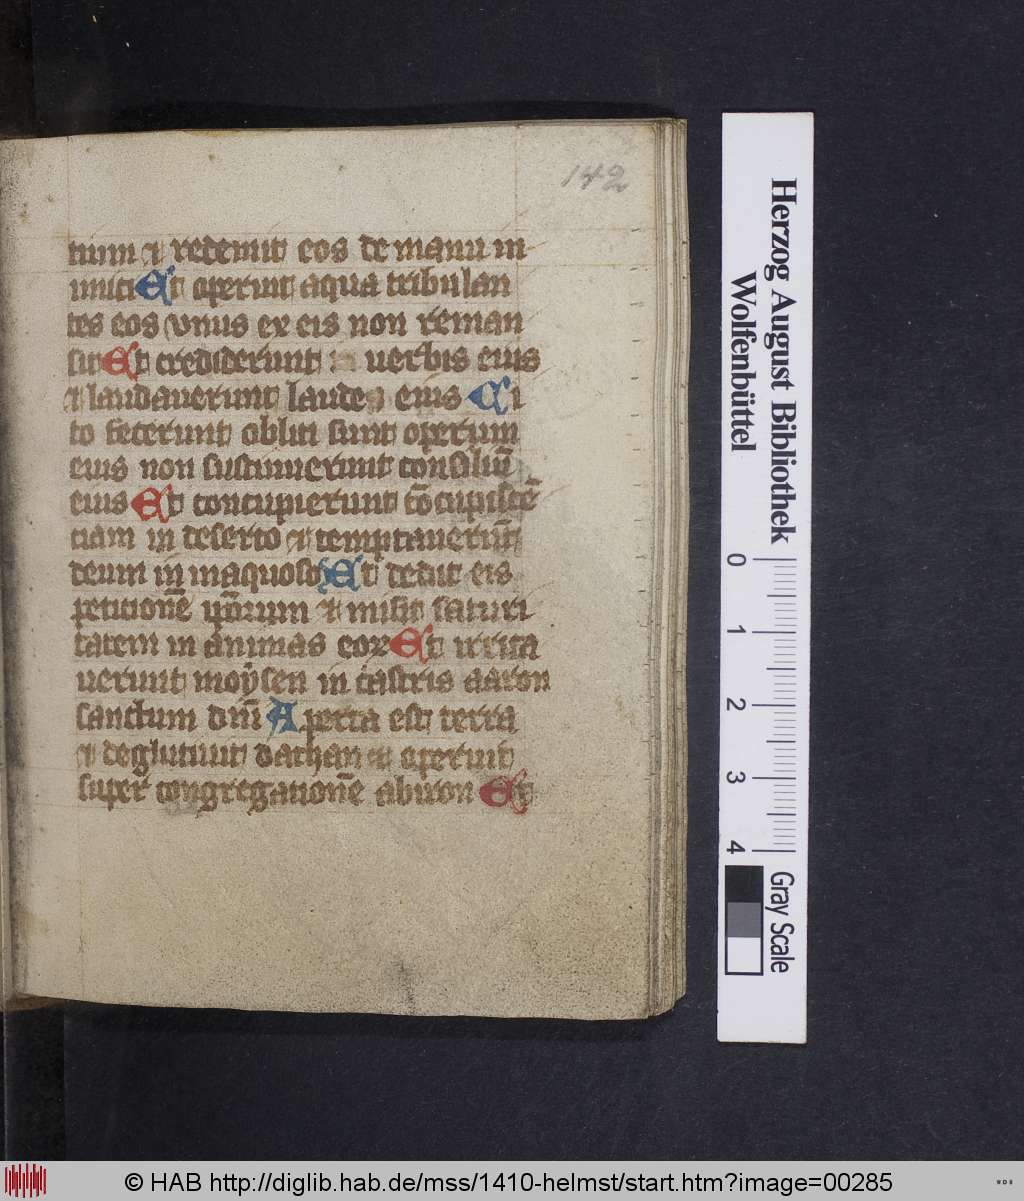 142
tium ⁊ redemit eos de manu in
imici Et operuit aqua tribulan
tes eos vnus ex eis non reman
sit Et crediderunt in uerbis eius
⁊ laudauerunt laudem eius Ci
to fecerunt obliti sunt operum
eius non sustinuerunt consiliū
eius Et concupierunt cōcupiscē
ciam in deserto ⁊ temptauerūt
deum in inaquoso Et dedit eis
petitionē ipōrum ⁊ misit saturi
tatem in animas eoꝝ Et irrita
uerunt moysen in castris aaron
sanctum dn̄i Aperta est terra
⁊ deglutiuit dathan et operuit
super congregationē abiron Ex
Herzog August Bibliothek
Wolfenbüttel
0 1 2 3 4
Gray Scale
© HAB http://diglib.hab.de/mss/1410-helmst/start.htm?image=00285